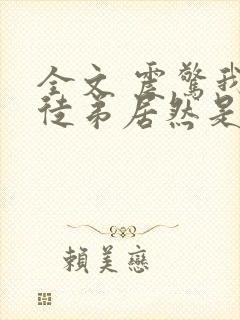 全文 震驚我
徒弟居然是
賴美戀